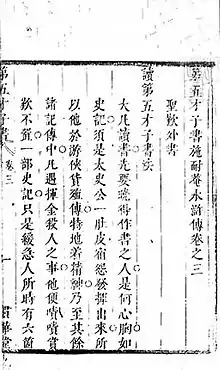 第五才子書施耐菴水滸傳卷之三
聖歎外書
讀第五才子書法
大凡讀書先要曉得作書之人是何心胸如
史記須是太史公一肚皮宿怨發揮出來所
以他於游俠貨殖傳特地着精神乃至其餘
諸記傳中凡遇揮金殺人之事他便嘖嘖賞
歎不置一部史記只是緩急人所時有六箇
第五才子書
卷三
一
貫華堂